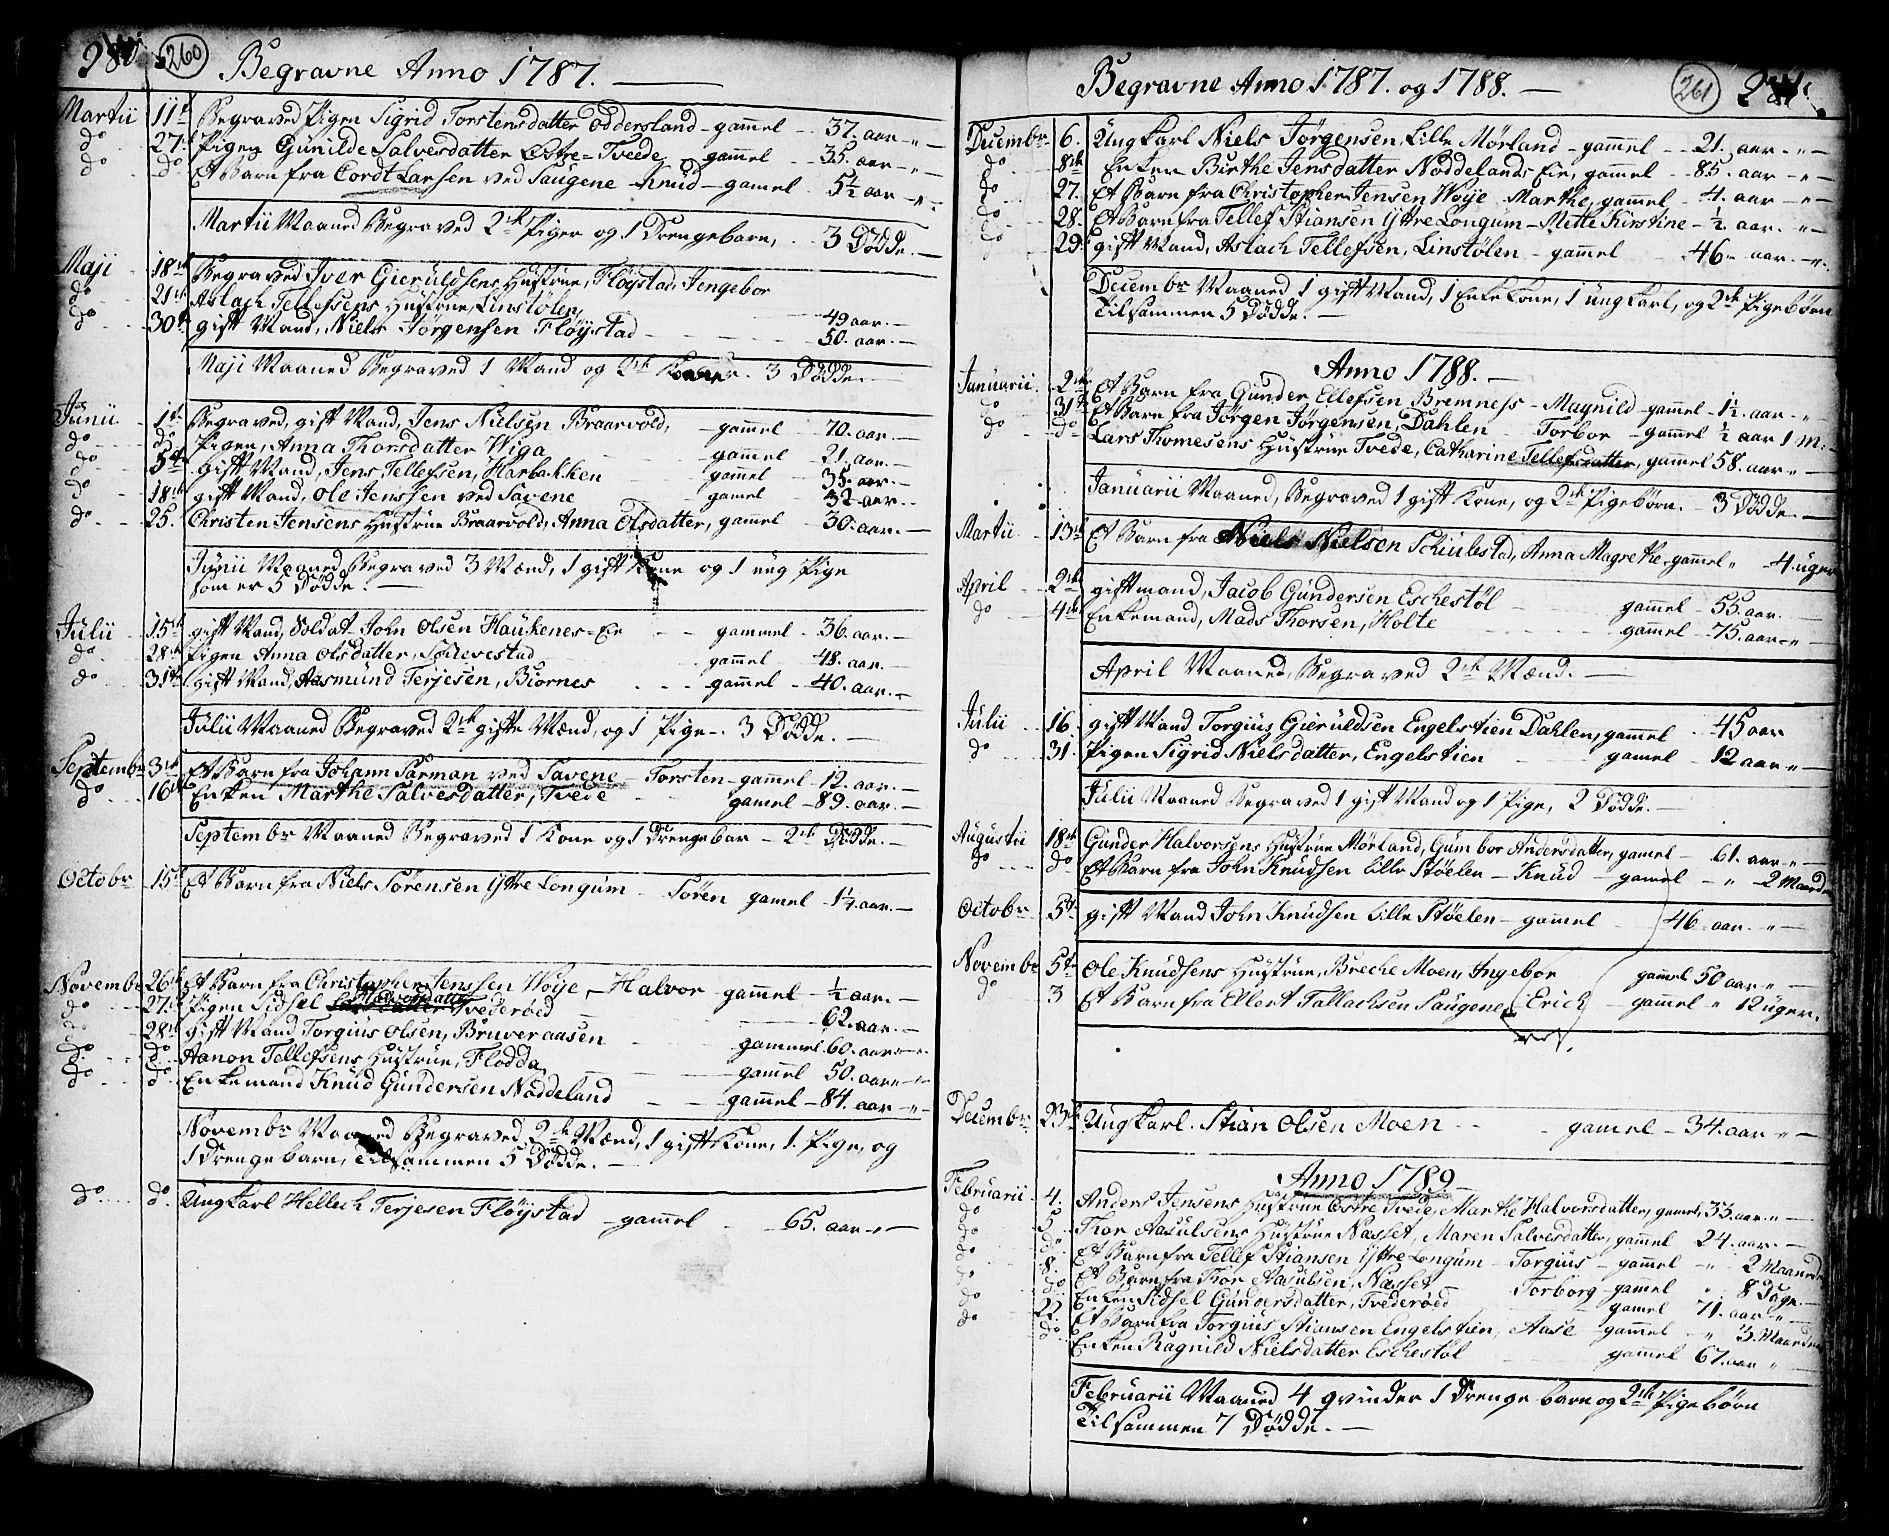 280. 260
Begravne Anno 1787. —
Martii 11te Begraved Pigen Sigrid Torstensdatter Oddersland - gammel - 37. aar
do 27. Pigen Gunilde Salvesdatter Østre-Tvede gammel - 35. aar
do do Et Barn fra Cordt Larsen ved Saugene Knud - gamel - 5½ aar
Martii Maaned Begraved 2de Piger og 1 Drengebarn, 3 Dødde. —
Maji 18de Begraved Iver Gieruldsens Hustrue, Fløystad, Jengebor
do 21de Aslach Tellefsens Hustrue, Linstølen, 49 aar. —
do 30te gift Mand, Niels Jørgensen Fløystad 50. aar. —
Maji Maaned Begraved 1 Mand og 2de Koner. 3 Dødde. —
Junii 1te Begraved, gift Mand, Jens Nielsen Braarvold, gammel 70. aar. —
do do Pigen, Anna Thorsdatter Wiga gammel 21. aar. —
do 5te gift Mand, Jens Tellefsen, Harbakken gammel 35. aar. —
do 18de gift Mand, Ole Jenssen ved Savene gamel 32 aar. —
do 25. Christen Jensens Hustrue Braarvold, Anna Olsdatter, gammel 30. aar. —
Junii Maaned Begraved 3 Mænd, 1 gift Kone og 1 ung Pige
som er 5 Dødde. —
Julii 15de gift Mand, Soldat John Olsen Haukenes-Eie gammel - 36. aar. —
do 28de Pigen Anna Olsdatter, gammel - 48. aar.
do 31te gift Mand, Aasmund Terjesen, Biornes gammel - 40. aar. —
Julii Maaned Begraved 2de gifte Mænd, og 1 Pige - 3 Dødde. —
Septembr 3de Et Barn fra Johann Sarman ved Savene - Torsten - gammel - 12. aar. —
do 16de Enken Marthe Salvesdatter, Tvede gamel - 89. aar. —
Septembr Maaned Begraved 1 Kone og 1 Drengebar - 2de Dødde. —
Octobr 15de Et Barn fra Niels Sørensen Yttre Longum - Søren gamel - 1¼ aar. —
Novembr 26de Et Barn fra Christopher Jenssen Woye - Halvor - gammel - ½ aar. —
do 27. Pigen Sidsel Halvorsdatter Tvederøed - 62. aar. —
do 28de gift Mand Torgius Olsen, Bruveraasen gammel 60. aar
do do Aanon Tellefsens Hustrue, Flodda gammel 50. aar
do do Enkemand Knud Gundersen Nøddeland gammel - 84. aar
Novembr Maaned Begraved 2de Mænd, 1 gift Kone, 1. Pige, og
1 Drengebarn, Tilsammen 5 Dødde. —
do do. Ungkarl Hellech Terjesen Fløystad - gammel - 65. aar
Begravne Anno 1787. og 1788. — 261 281.
Decembr 6. Ungkarl Niels Jørgensen, Lille Mørland - gammel - 21. aar
do 8de Enken Birthe Jensdatter Nøddelands Eie, gammel - 85. aar
do 27. Et Barn fra Christopher Jensen Woye - Marthe, gammel - 4. aar
do 28. Et Barn fra Tellef Stiansen Yttre Longum - Mette Kirstine - ½ aar.
do 29. gift Mand, Aslach Tellefsen, Linstølen - gammel 46 - aar.
Decembr Maaned 1 gift Mand, 1 Enke Kone, 1 ung karl, og 2de Pigebørn
Tilsammen 5 Dødde. —
Anno 1788. —
Januarii 2de Et Barn fra Gunder Ellefsen Bremness - Magnild - gammel - 1½ aar
do 31te Et Barn fra Jørgen Jørgensen, Dahlen Torbor - gammel ½ aar 1 M:
do do Lars Thomesens Hustrue Tvede, Catharine Tellefsdatter, gamel 58. aar
Januarii Maaned, Begraved 1 gift Kone, og 2de Pigebørn. - 3 Dødde. —
Martii 13de Et Barn fra Niels Nielsen Schiulestad, Anna Magrethe - gammel 4. uger
April 2de giftmand, Jacob Gundersen Eschestøl gammel - 55. aar.
do 4de Enkemand, Mads Thorsen, Holte gammel - 75. aar
April Maaned, Begraved 2de Mænd. —
Julii 16. gift Mand Torgius Gieruldsen Engelstien Dahlen, gammel 45 aar
do 31. Pigen Sigrid Nielsdatter, Engelstien gamel - 12 aar
Julii Maaned Begraved 1 gift Mand og 1 Pige, 2 Dødde. —
Augustii 18de Gunder Halvorsens Hustrue Mørland, Gumbor Andersdatter, gamel - 61. aar
do do Et Barn fra John Knudsen Lille Støelen - Knud - gamel 2 Maaneder
Octobr 5te gift Mand John Knudsen Lille Støelen - gammel 46 - aar
Novembr 5te Ole Knudsens Hustrue, Breche Moen, Ingebor gamel 50 aar
do 3 Et Barn fra Ellert Tallachsen Saugene, Erich - gammel 12 uger.
Decembr 23de Ungkarl Stian Olsen Moen - gamel - 34. aar
Anno 1789 —
Februarii 4. Anders Jensens Hustrue Østre Tvede, Marthe Halvorsdatter, gamel, 33. aar
do 5. Thor Aasulsens Hustrue Nasset, Maren Salvesdatter, gammel 24. aar.
do do Et Barn fra Tellef Stiansen Yttre Longum - Torgius - gammel 2 Maaneder
do 8. Et Barn fra Thor Aasulsen, Nasset Torborg - gammel 8 Dage. —
do do Enken Sidsel Gundersdatter, Tvederøed gamel 71. aar
do 22. Et Barn fra Torgius Stiansen Engelstien, Aase - gammel 3. Maaneder
do do Enken Ragnild Nielsdatter Eschestøl gammel 67. aar
Februarii Maaned 4 qvinder 1 Drenge barn og 2de Pigebørn
Tilsammen 7 Dødde. —